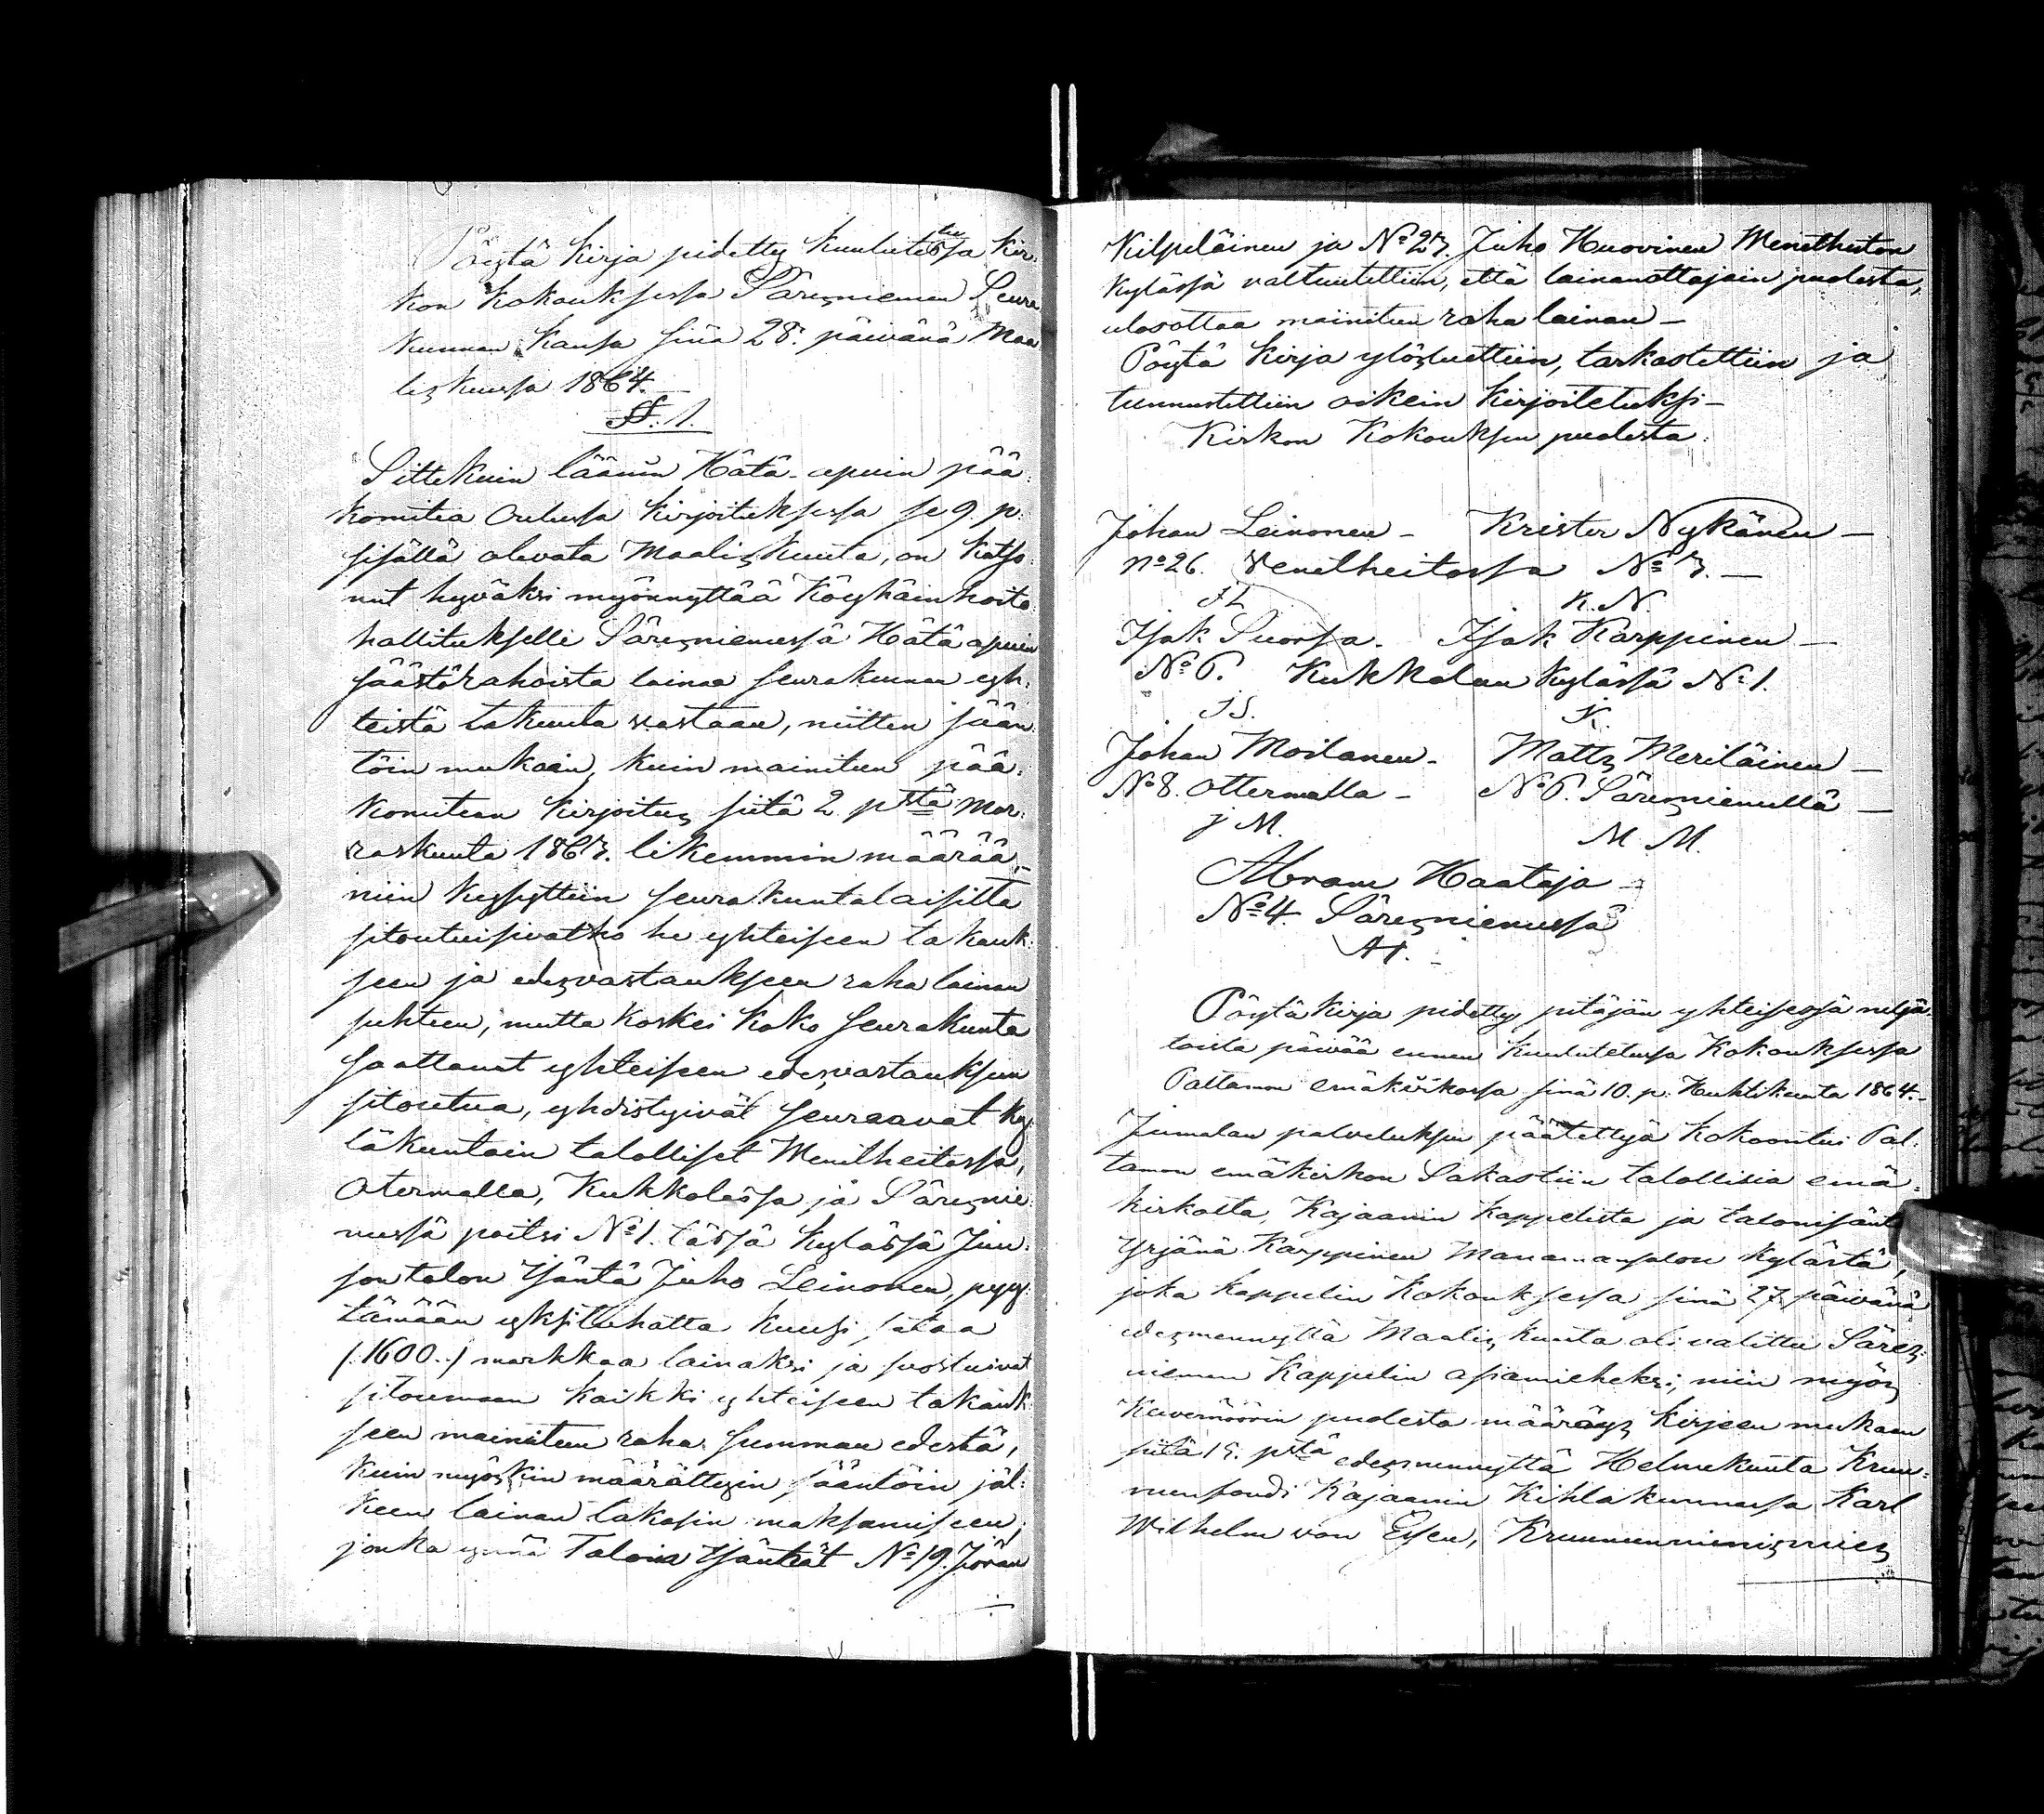 Pöytä kirja pidetty kuulutetussa kir:
kon kokouksessa Säresniemen Seura
kunnan kansa sinä 28: päivänä Maa
liskuussa 1864.
§. 1.
Sittekuin läänin Hätä-apuin pää:
komitea Oulussa kirjoituksessa se 9 p:
sisällä olevata Maaliskuuta, on katso:
nut hyväksi myönnyttää Köyhäinhoito
hallitukselle Säresniemessä Hätä apuin
säästörahoista lainaa seurakunnan yh:
teistä takuuta vastaan, niitten sään:
töin mukaan, kuin mainitun pää:
komitean kirjoitus siitä 2 pstä Mar:
raskuuta 1863. likemmin määrää,
niin kysyttiin seurakuntalaisilta
sitoutuisivatko he yhteiseen takauk:
seen ja edesvastaukseen raha lainan
suhteen, mutta koskei koko seurakunta
saattanut yhteiseen edesvastauksen
sitoutua, yhdistyivät seuraavat ky
läkuntain talolliset Menetheitossa,
Otermalla, Kukkolassa ja Säresnie
messä paitsi No 1. tässä kylässä Juu:
son talon Isäntä Juho Leinonen, pyy
tämään yksituhatta kuusi sataa
(:1600:) markkaa lainaksi ja suostuivat
sitoumaan kaikki yhteiseen takauk
seen mainitun raha summan edestä,
kuin myöskin määrättyin sääntöin jäl:
keen lainan takasin maksamiseen,
jonka ynnä Taloin Isännät No 19. Jöran
Kilpeläinen ja No 23. Juho Huovinen Menetheiton
kylässä valtuutettiin, että lainanottajain puolesta,
ulosottaa mainitun raha lainan –
Pöytä kirja ylösluettiin, tarkastettiin ja
tunnustettiin oikein kirjoitetuksi –
Kirkon Kokouksen puolesta:
Johan Leinonen – Krister Nykänen –
No 26. Venetheitossa No 3. –
J L K. N.
Isak Suorsa. Isak Karppinen –
No 6. Kukkolan kylässä No 1.
I S. K.
Johan Moilanen. Matts Meriläinen –
No 8. Ottermalla – No 6. Säresniemellä –
J M. M. M.
Abram Haataja –
No 4. Säresniemessä
Pöytäkirja pidetty pitäjän yhteisessä neljä
toista päivää ennen kuulutetussa Kokouksessa
Paltamon emäkirkossa sinä 10. p. Huhtikuuta 1864. –
Jumalan palveluksen päätettyä kokoontui Pal:
tamon emäkirkon Sakastiin talollisia emä:
kirkolta, Kajaanin kappelista ja talonisäntä
Yrjänä Karppinen Manamansalon kylästä,
joka kappelin Kokouksessa sinä 27 päivänä
edesmennyttä Maaliskuuta oli valittu Säres:
niemen Kappelin asiamieheksi, niin myös
Kuvernöörin puolesta määräys kirjeen mukaan
siitä 15. pstä edesmennyttä Helmekuuta Kruu:
nunfoudi Kajaanin Kihlakunnassa Karl
Wilhelm von Essen, Kruununnimismies